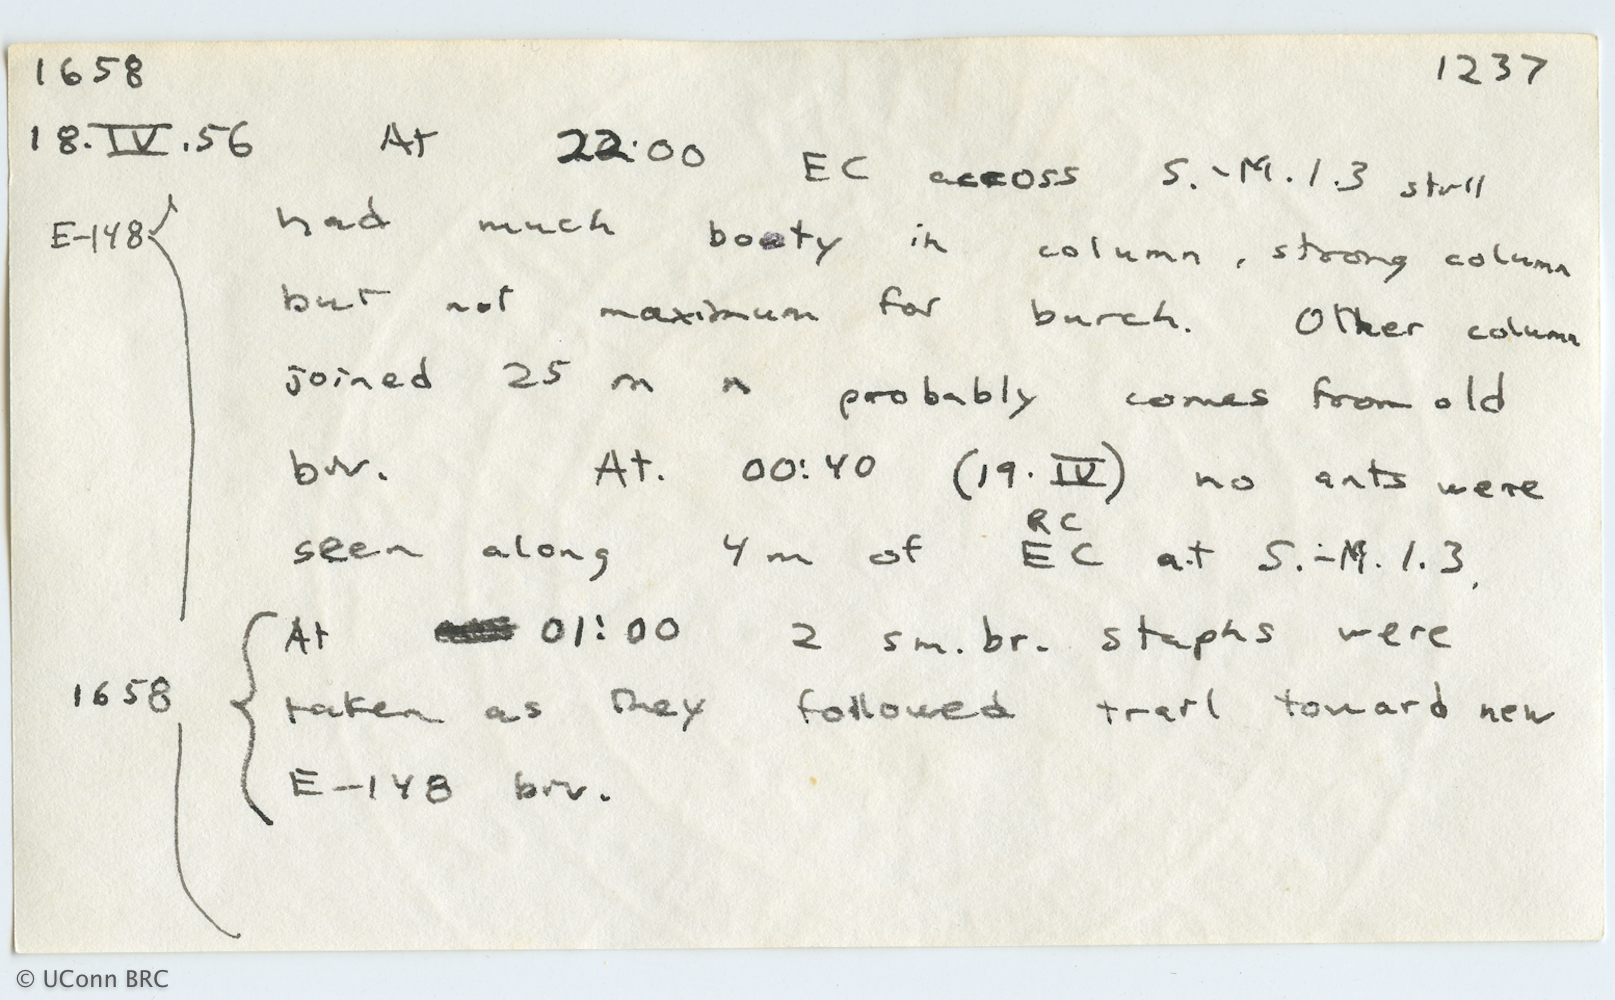 1658 1237
18.IV.56 At 22:00 EC across S.-M.1.3 still
E-148 had much booty in column, strong column
but not maximum for burch. Other column
joined 25 m n probably comes from old
biv. At. 00:40 (19.IV) no ants were
RC
seen along 4m of EC at S.-M.1.3.
At 01:00 2 sm. br. staphs were
1658 taken as they followed trail toward new
E-148 biv.
© UConn BRC